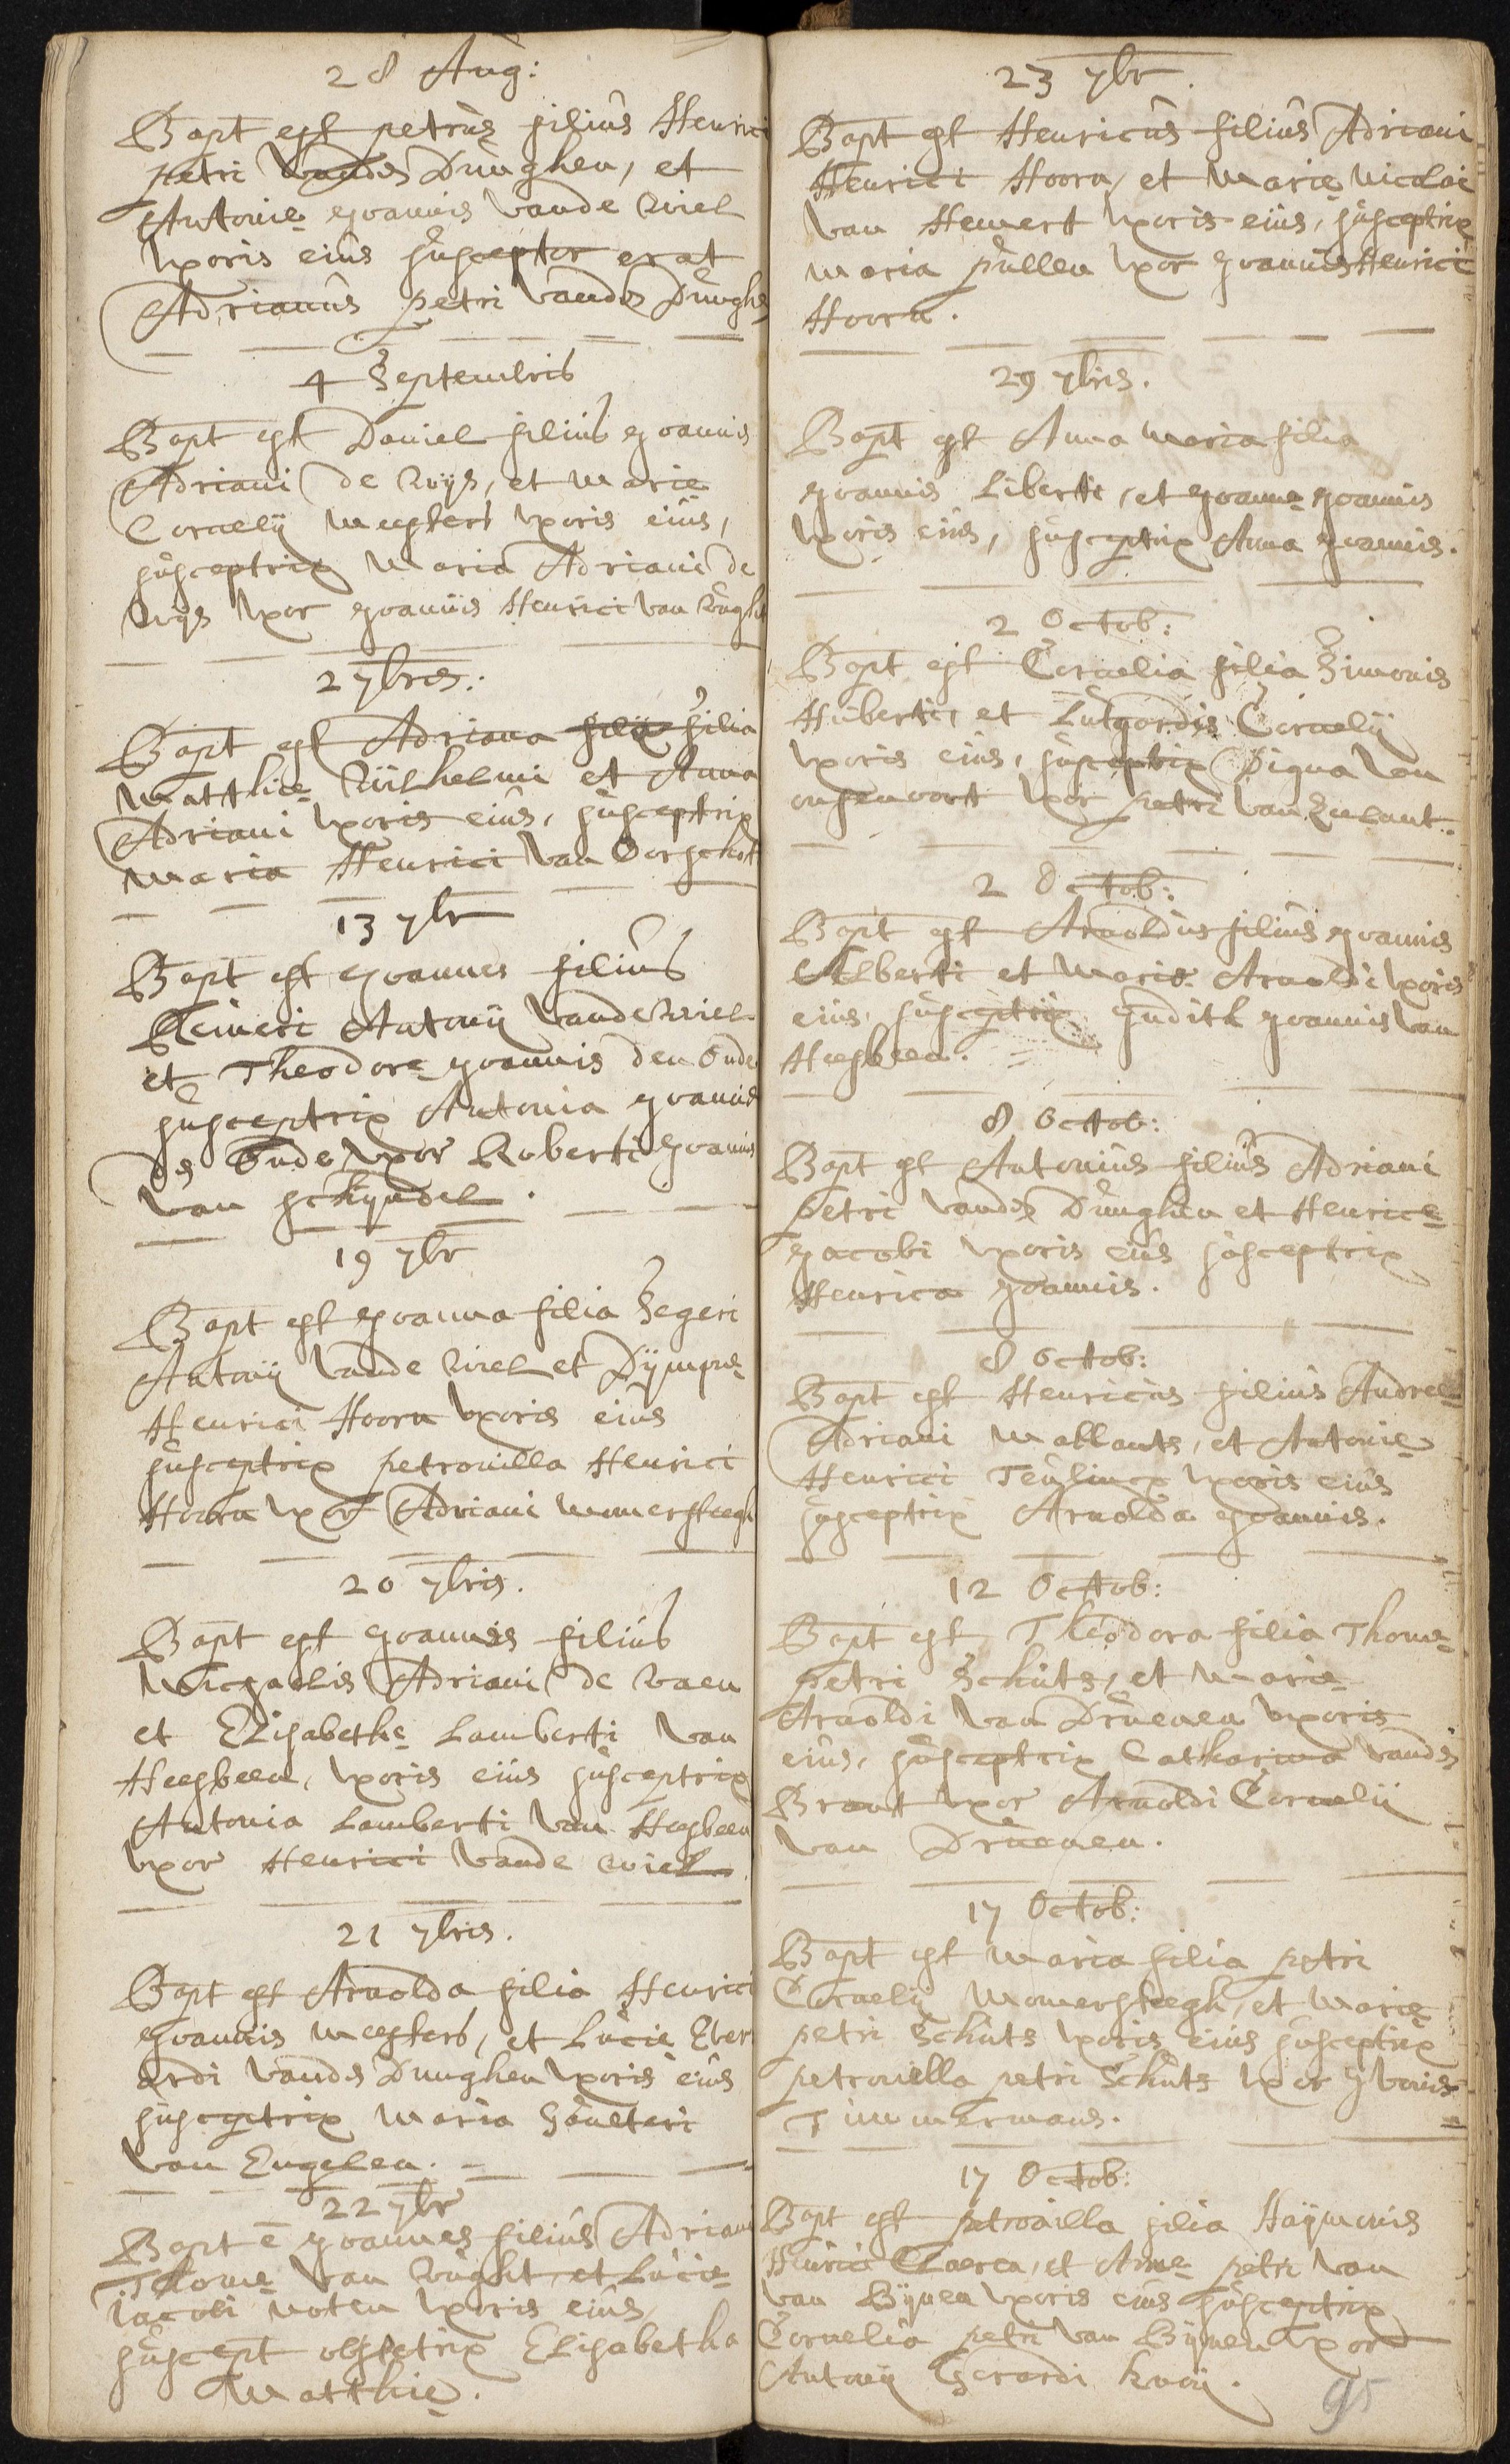 28 Aug:
Bapt est petrus filius Henrici
petri vande Dunghen, et
Antonie Joannis vande Wiel
uxoris eius susceptor erat
Adrianus petri vande Dunghe
4 Septembris
Bapt est Daniel filius Joannis
Adriani de Wijs, et Marie
Cornelij Meesters uxoris eius,
susceptrix Maria Adriani de
Wijs uxor Joannis Henrici van
27bris:
Bapt est Adriana filia filia
Matthie Wilhelmi et Anna
Adriani uxoris eius, susceptrix
Maria Henrici van Oorschot
13 7br
Bapt est Joannes filius
Reineri Antonij vande Wiel
et Theodore Joannis den Oude
susceptrix Antonia Joannis
de Oude uxor Roberti Joannis
van schyndel.
19 7br
Bapt est Joanna filia Segeri
Antonij vande Wiel et Dijmpne
Henrici Hoorn uxoris eius
susceptrix petronilla Henrici
Hoorn uxor Adriani Momersteegh
20 7bris.
Bapt est Joannes filius
Michaelis Adriani de Vaen
et Elisabethe Lamberti van
Heesbeen, uxoris eius susceptrix
Antonia Lamberti van Heesbeen
uxor Henrici vande Wiel
21 7bris.
Bapt est Arnolda filia Henrici
Joannis Meesters, et Lucie Ever
ardi vande Dunghen uxoris eius
susceptrix Maria Gaulteri
van Engelen.
22 7br
Bapt ē Joannes filius Adriani
Thome van Vught, et Lucie
Jacobi Noten uxoris eius,
suscept obstetrix Elisabetha
Matthie.
23 7br.
Bapt est Henricus filius Adriani
Henrici Hoorn, et Marie Nicolai
van Hemert uxoris eius, susceptrix
Maria pullen uxor Joannis Henrici
Hoorn.
29 7bris.
Bapt est Anna Maria filia
Joannis Liberti, et Joanne Joannis
uxoris eius, susceptrix Anna Joannis.
2 Octob:
Bapt est Cornelia filia Simonis
Huberti, et Lutgardis Cornelij
uxoris eius, susceptrix Digna van
onsenoort uxor petri van Zulant.
2 Octob:
Bapt est Arnoldus filius Joannis
Alberti et Marie Arnoldi uxoris
eius, susceptrix Judith Joannis van
Heesbeen.
8 Octob:
Bapt est Antonius filius Adriani
petri vande Dunghen et Henrice
Jacobi uxoris eius susceptrix
Henrica Joannis.
8 Octob:
Bapt est Henricus filius Andree
Adriani Mallants, et Antonie
Henrici Teulincx uxoris eius
susceptrix Arnolda Joannis.
12 Octob:
Bapt est Theodora filia Thome
petri Schuts, et Marie
Arnoldi van Drunen uxoris
eius, susceptrix Catharina vande
Brant uxor Arnoldi Cornelij
van Drunen.
17 Octob:
Bapt est Maria filia petri
Cornelij Momersteegh, et Marie
petri Schuts uxoris eius susceptrix
petronella petri Schuts uxor
Timmermans.
17 Octob:
Bapt est petronilla filia Haijmonis
Henrici Claeren, et Anne petri van
van Bijnen uxoris eius susceptrix
Cornelia petri van Bijnen uxor
Antonij Gerardi
95